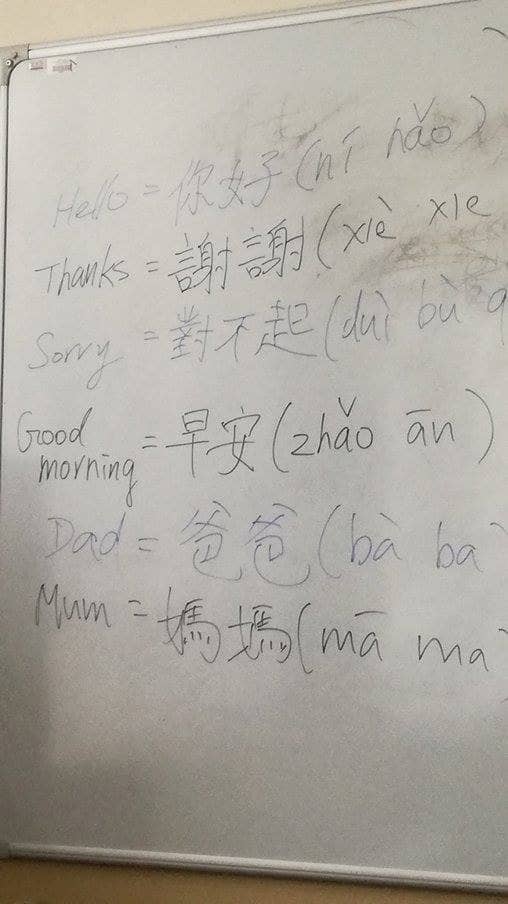 Hello = 你好 (ní hǎo)
Thanks = 謝謝 (xiè xie
Sorry = 對不起 (duì bù q
Good
morning = 早安 (zhǎo ān)
Dad = 爸爸 (bà ba)
Mum = 媽媽 (mā ma)